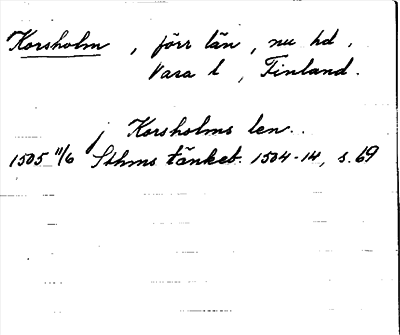 Korsholm, förr län, nu hd,
Vasa l, Finland.
j Korsholms len.
1505 11/6 Sthms tänkeb. 1504-14, s. 69